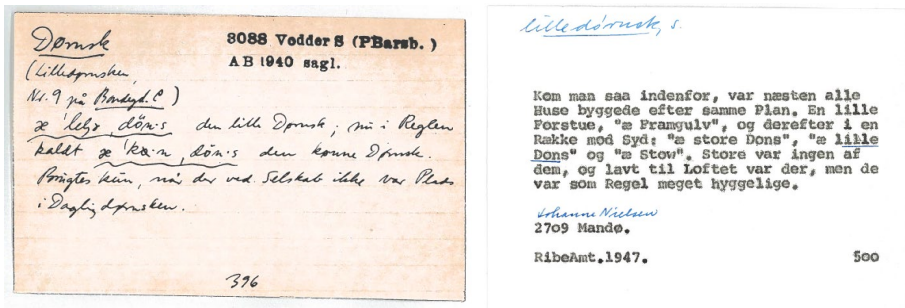 Dørnsk
3088 Vedder S (PBarsb. )
AB 1940 sagl.
(Lilledørnsken,
Nr. 9 på Bondegd. C)
æ lelə dön·s den lille Dørnsk; nu i Reglen
kaldt æ kø·n dön·s den kønne Dørnsk.
Brugtes kun, når der ved Selskab ikke var Plads
i Dagligdørnsken.
396
lilledørnsk, s.
Kom man saa indenfor, var næsten alle
Huse byggede efter samme Plan. En lille
Forstue, "æ Framgulv", og derefter i en
Række mod Syd: "æ store Dons", "æ lille
Dons" og "æ Stow". Store var ingen af
dem, og lavt til Loftet var der, men de
var som Regel meget hyggelige.
Johanne Nielsen
2709 Mandø.
RibeAmt.1947.
500